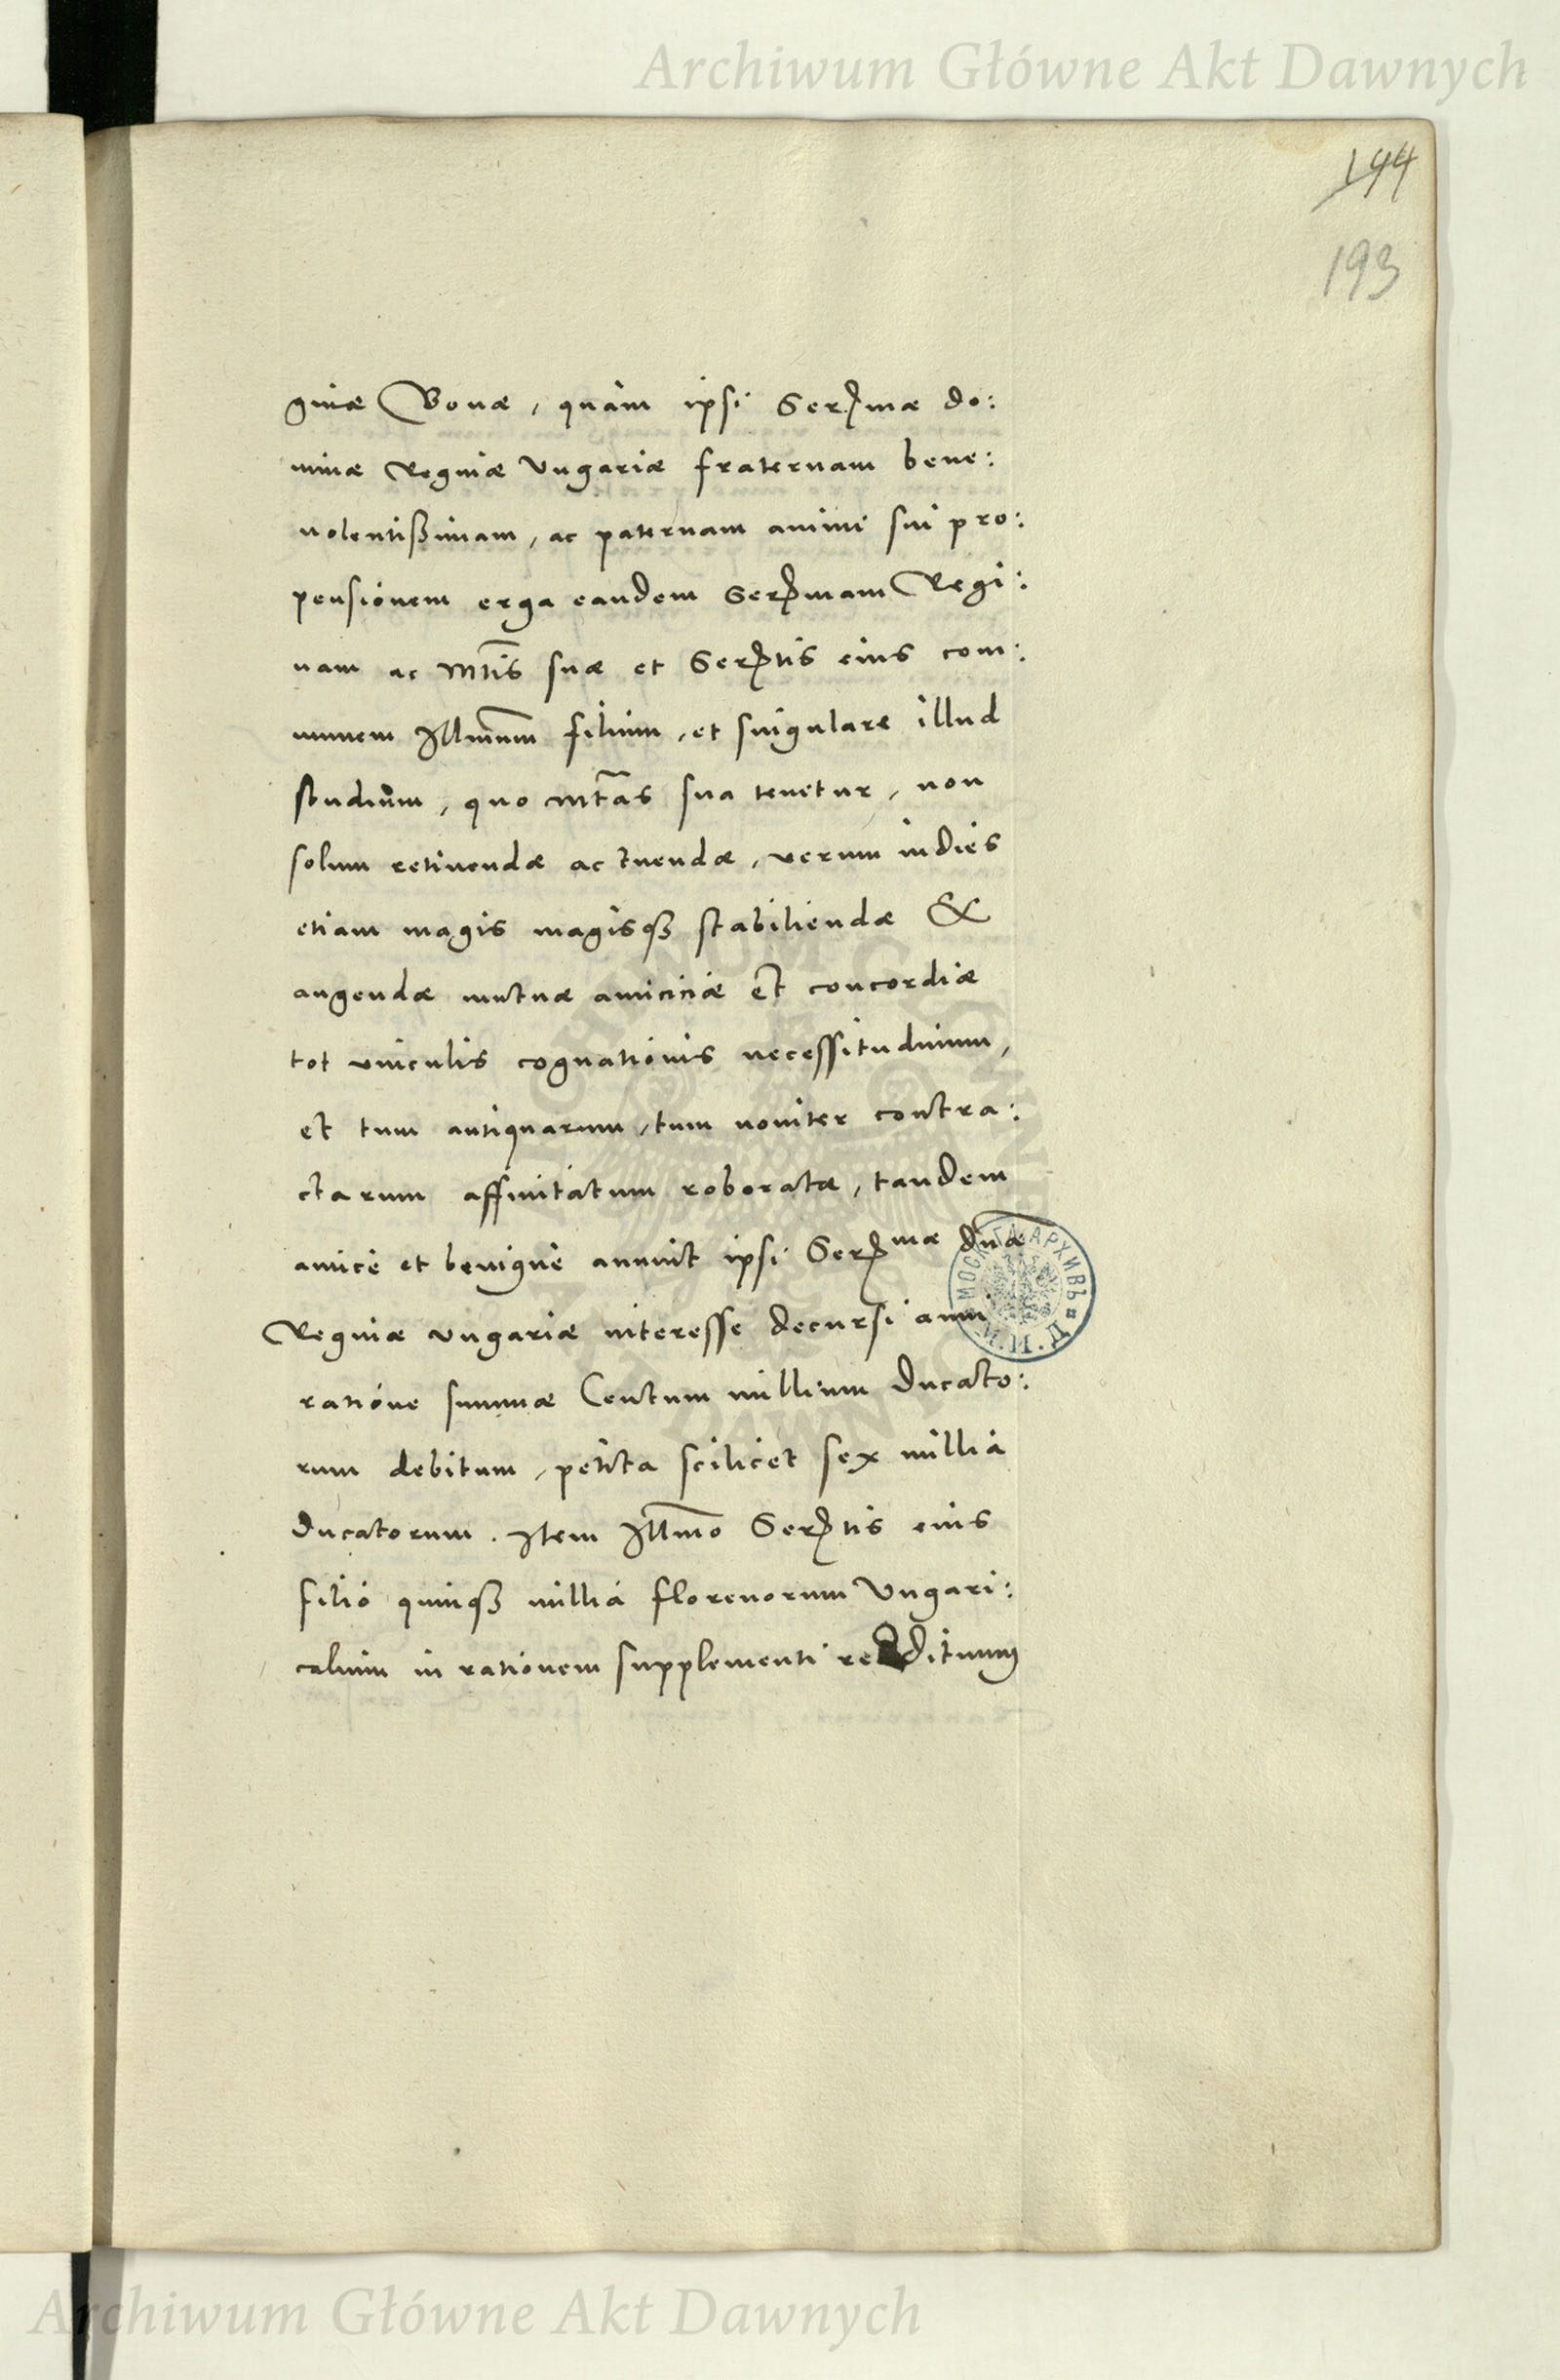 Archiwum Główne Akt Dawnych
144
193
ginæ Bonæ, quàm ipsi Sermæ do:
minæ Reginæ Vngariæ fraternam bene:
uolentißimam, ac paternam animi sui pro:
pensionem erga eandem Sermam Regi:
nam ac Mtis suæ et Sertis eius com:
munem Illmum filium, et singulare illud
studium, quo Mtas sua tenetur, non
solum retinendæ ac tuendæ, verum indies
etiam magis magisqȝ stabiliendæ &
augendæ mutuæ amiciciæ et concordiæ
tot vinculis cognationis necessitudinum,
et tum antiquarum, tum noviter contra:
ctarum affinitatum roboratæ, tandem
amicè et benignè annuit ipsi Sermæ dnæ
Reginæ vngariæ interesse decursi anni
ratione summæ Centum millium Ducato:
rum debitum, petita scilicet sex millia
Ducatorum. Item Illmo Sertis eius
filio quinqȝ millia florenorum Vngari:
calium in rationem supplementi reddituum
Archiwum Główne Akt Dawnych